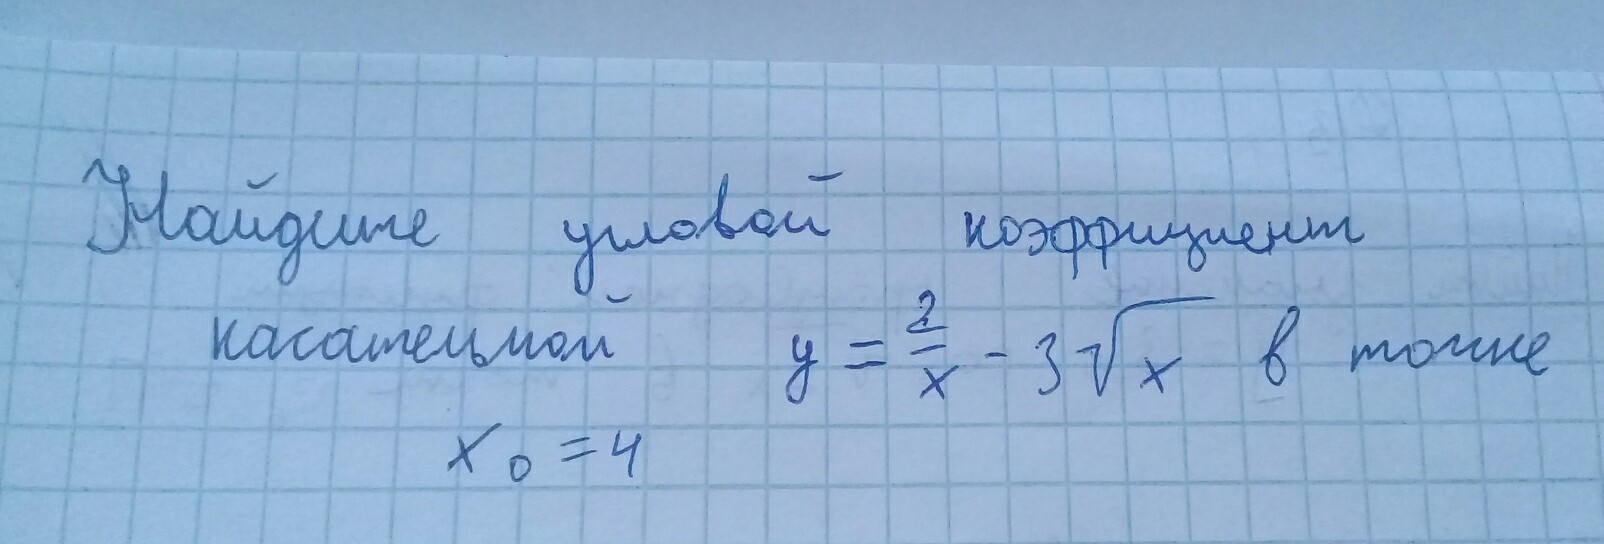 Найдите угловой коэффициент
касательной y = 2/x - 3√x в точке
x₀ = 4